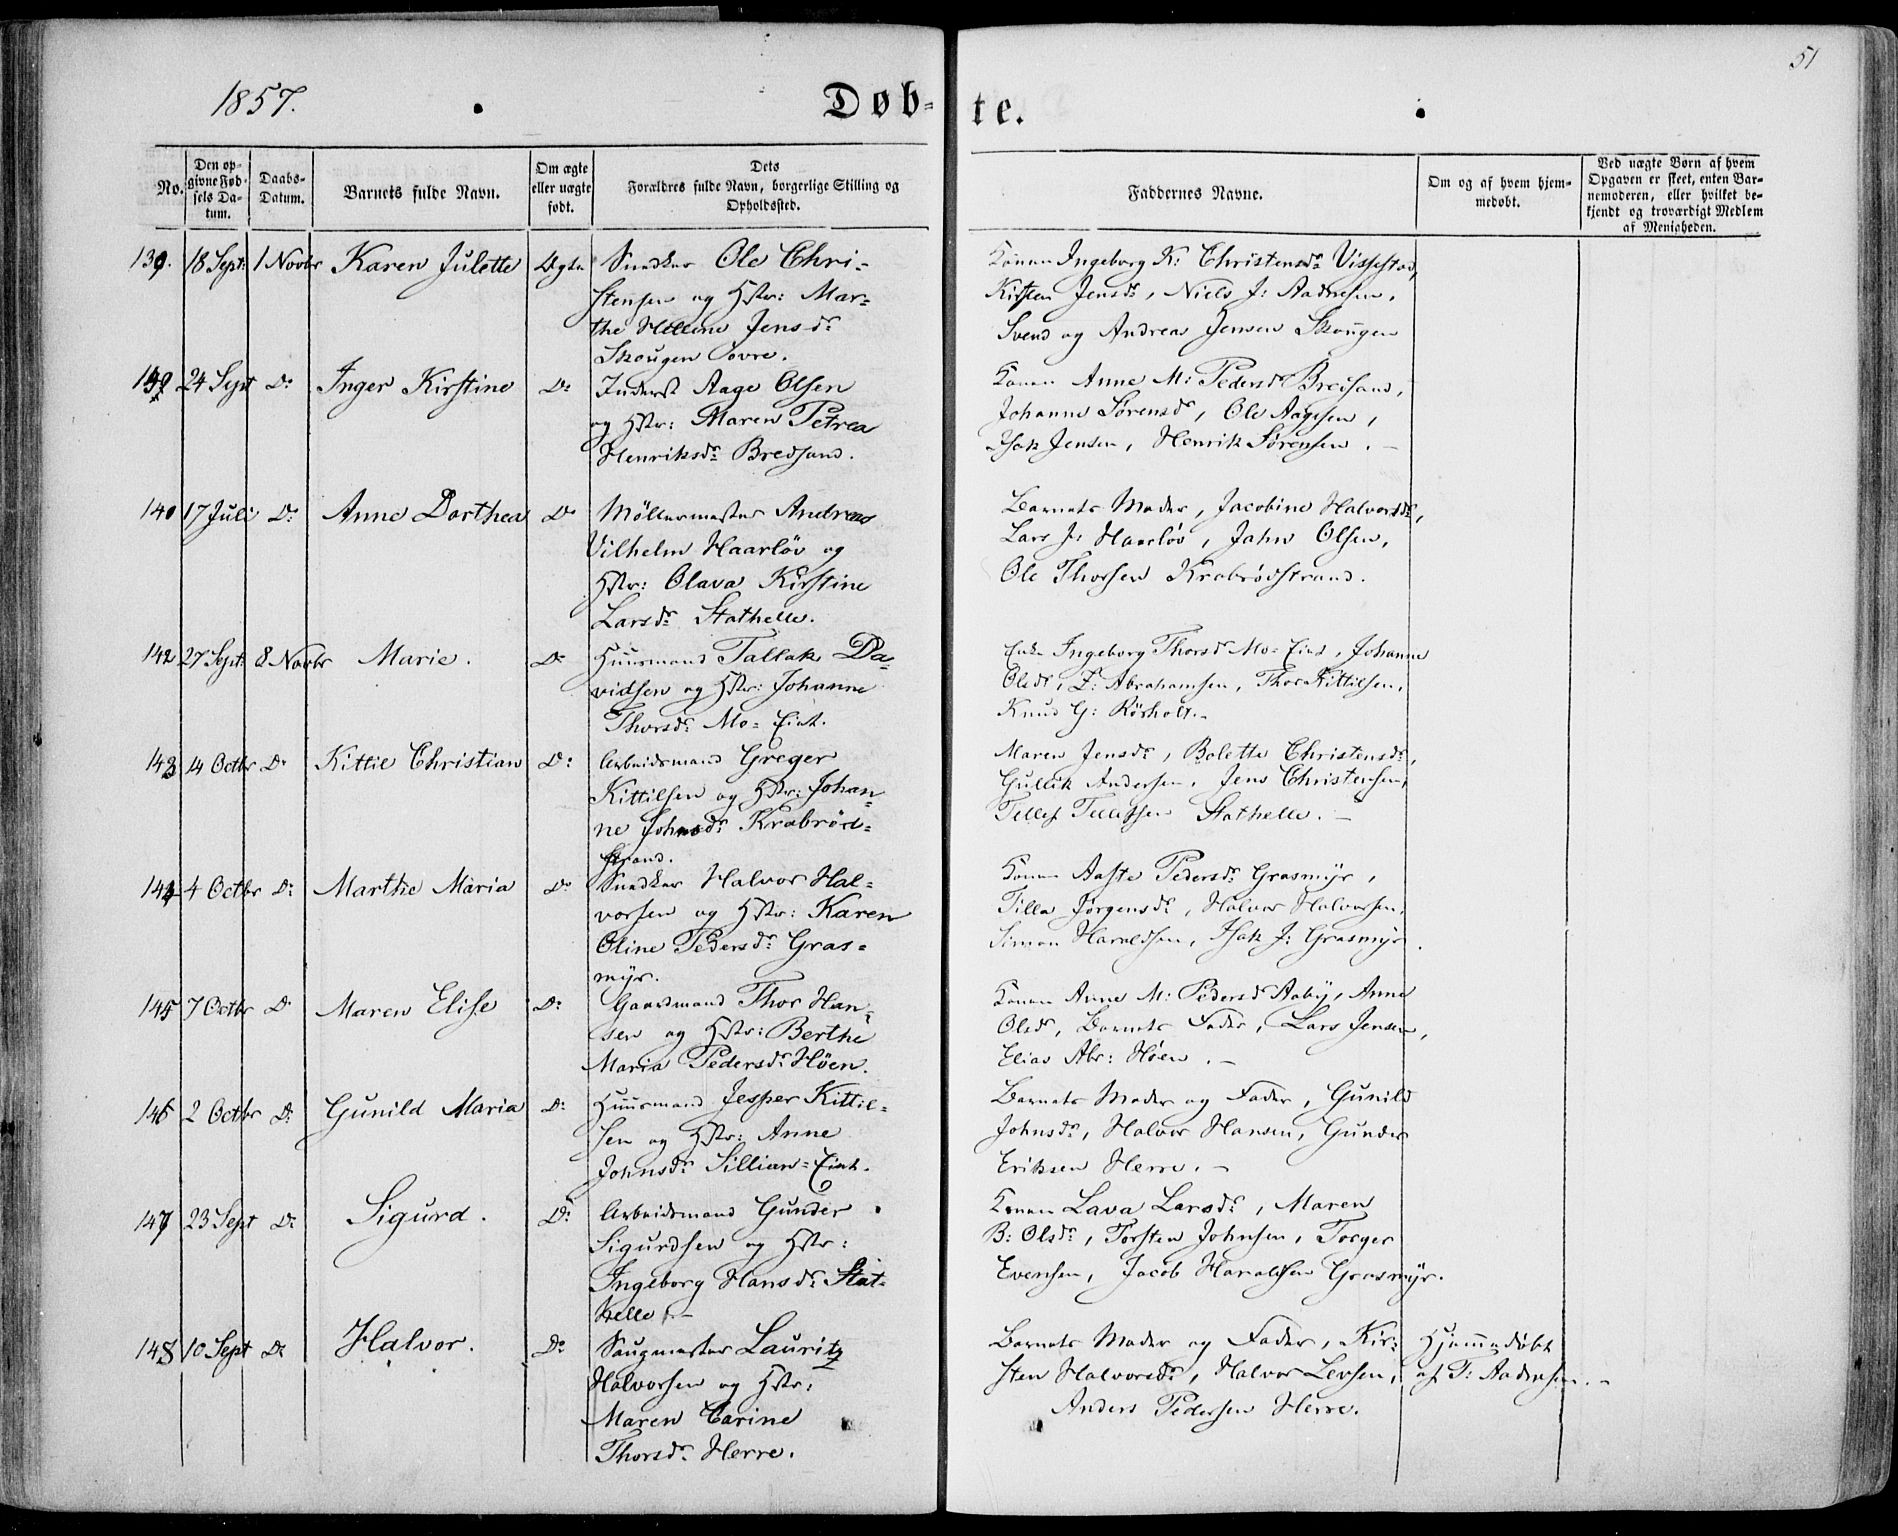 51
1857.
Døb-
te.
No.
Den op-
givne Fød-
sels Da-
tum.
Daabs-
Datum.
Barnets fulde Navn.
Om ægte
eller uægte
født.
Dets
Forældres fulde Navn, borgerlige Stilling og
Opholdssted.
Faddernes Navne.
Om og af hvem hjem-
medøbt.
Ved uægte Børn af hvem
Opgaven er skeet, enten Bar-
nemoderen, eller hvilket be-
kjendt og troværdigt Medlem
af Menigheden.
139. 18 Sept: 1 Novbr Karen Julette Ægte Snedker Ole Chri-
stensen og Hstr: Mar-
the Hellene Jensdr
Skougen övre.
Konen Ingeborg K: Christensdr Vissestad,
Kirsten Jensdr, Niels J: Aadnesen,
Svend og Andreas Jensen Skougen
24 Sept Do Inger Kirstine Do Inderst Aage Olsen
og Hstr: Maren Petrea
Henriksdr Bredsand.
Konen Anne M: Pedersdr Bredsand,
Johanne Sörensdr, Ole Aagesen,
Isak Jensen, Henrik Sörensen. -
140 17 Juli Do Anne Dorthea Do Möllermester Andreas
Vilhelm Haarlöv og
Hstr: Olava Kirstine
Larsdr Stathelle.
Barnets Moder, Jacobine Halvorsdr,
Lars J: Haarlöv, John Olsen,
Ole Thorsen Krabrödstrand.
142 27 Sept: 8 Novbr Marie. Do Huusmand Tallak Da-
vidsen og Hstr: Johanne
Thorsdr Mo-Eiet.
Enke Ingeborg Thorsdr Mo-Eiet, Johanne
Olsdr, Z: Abrahamsen, Thor Kittilsen,
Knud G: Rörholt.-
143 14 Octbr Do Kittil Christian Do: Arbeidsmand Greger
Kittilsen og Hstr: Johan-
ne Johnsdr Krabröd-
strand.
Maren Jensdr, Bolette Christensdr,
Gullik Andersen, Jens Christensen,
Tellef Tellefsen Stathelle. -
144 4 Octbr Do: Marthe Maria Do Snedker Halvor Hal-
vorsen og Hstr: Karen
Oline Pedersdr Gras-
myr.
Konen Aaste Pedersdr Grasmyr,
Tilla Jörgensdr, Halvor Halvorsen,
Simon Haraldsen, Isak J: Grasmyr.
145 7 Octbr Do Maren Elise Do: Gaardmand Thor Han-
sen og Hstr: Berthe
Maria Pedersdr Höen.
Konen Anne M: Pedersdr Aaby, Anne
Olsdr, Barnets Fader, Lars Jensen,
Elias Abr: Höen. -
146 2 Octbr Do: Gunild Maria Do: Huusmand Jesper Kittil-
sen og Hstr: Anne
Johnsdr Sillian-Eiet.
Barnets Moder og Fader, Gunild
Johnsdr, Halvor Hansen, Gunder
Eriksen Herre. -
147 23 Sept Do Sigurd. Do: Arbeidsmand Gunder
Sigurdsen og Hstr:
Ingeborg Hansdr Stat-
helle. -
Konen Lava Larsdr, Maren
B: Olsdr, Torsten Johnsen, Torger
Evensen, Jacob Haraldsen Grasmyr.
148 10 Sept Do Halvor. Do: Saugmester Lauritz
Halvorsen og Hstr:
Maren Carine
Thorsdr Herre.
Barnets Moder og Fader, Kir-
sten Halvorsdr, Halvor Levsen,
Anders Pedersen Herre.
Hjemmedøbt
af T: Aadnesen. -